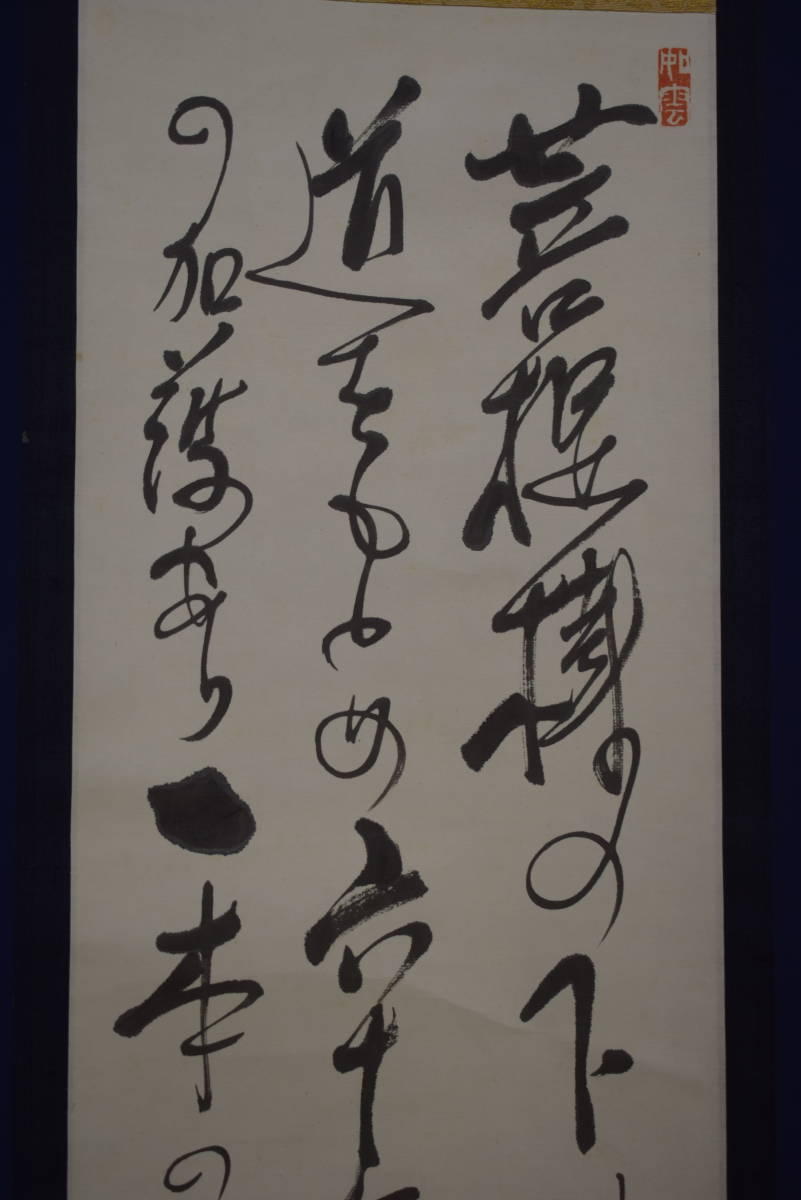 如雲
菩提樹の下
道をもとめ六十
の加護あり一本の